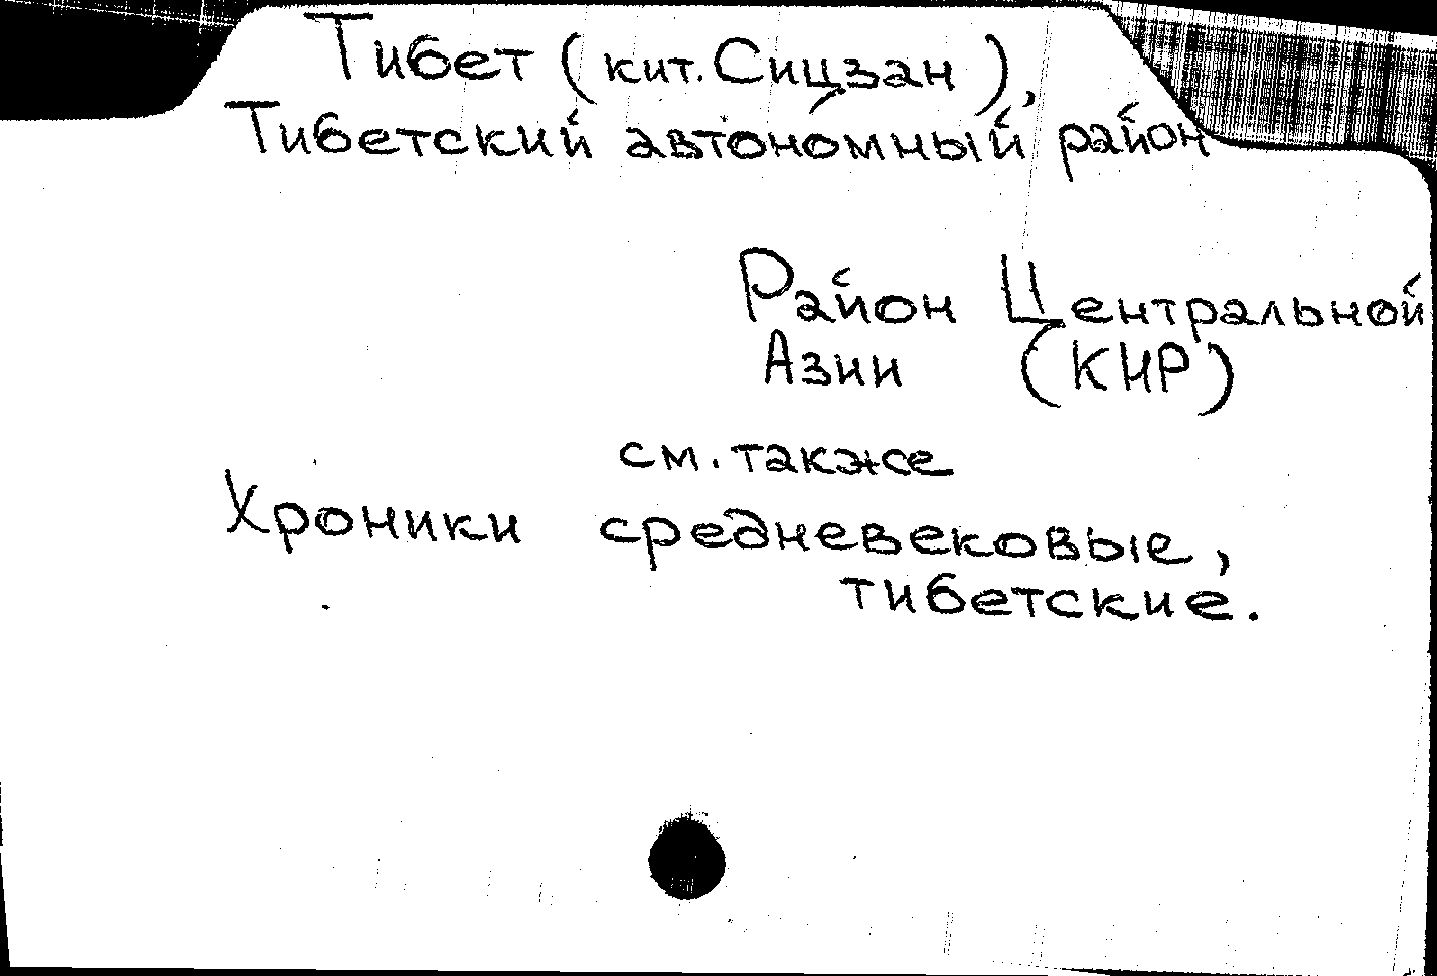 Тибет (кит. Сицзан),
Тибетский автономный район
Район Центральной
Азии (КНР)
см. также
Хроники средневековые,
тибетские.